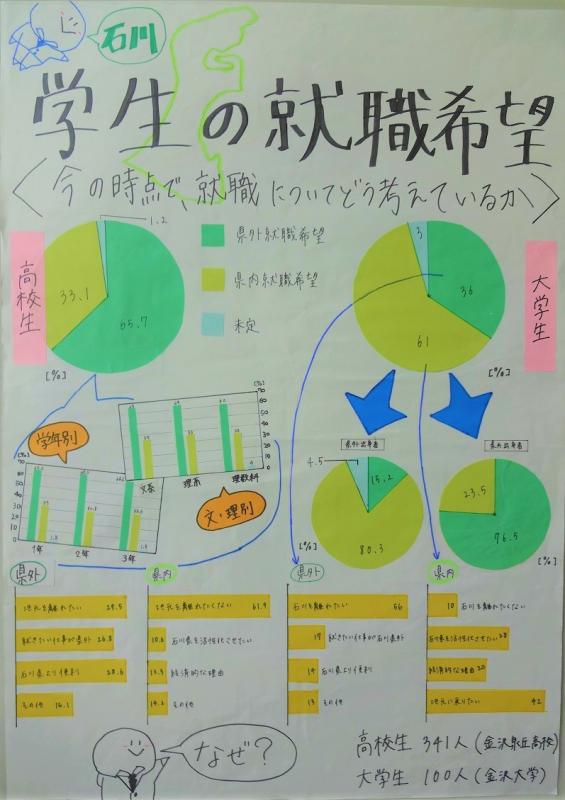 石川
学生の就職希望
〈今の時点で、就職についてどう考えているか〉
高校生
1.2
33.1
65.7
[%]
県外就職希望
県内就職希望
未定
大学生
3
36
61
[%]
学年別
[%]
70
60
50
40
30
20
10
0
1年
2年
3年
文系
理系
理数科
[%]
文・理別
県外出身者
4.5
15.2
80.3
[%]
23.5
76.5
[%]
県外
地元を離れたい 29.5
就きたい仕事が県外 26.8
石川県より便利 28.6
その他 16.1
県内
地元を離れたくない 61.9
石川県を活性化させたい
経済的な理由
14.2 その他
県外
石川を離れたい 56
17 就きたい仕事が石川県外
14 石川県より便利
13 その他
県内
10 石川を離れたくない
石川県を活性化させたい 28
経済的な理由 20
地元に戻りたい 42
なぜ?
高校生 341人(金沢泉丘高校)
大学生 100人(金沢大学)